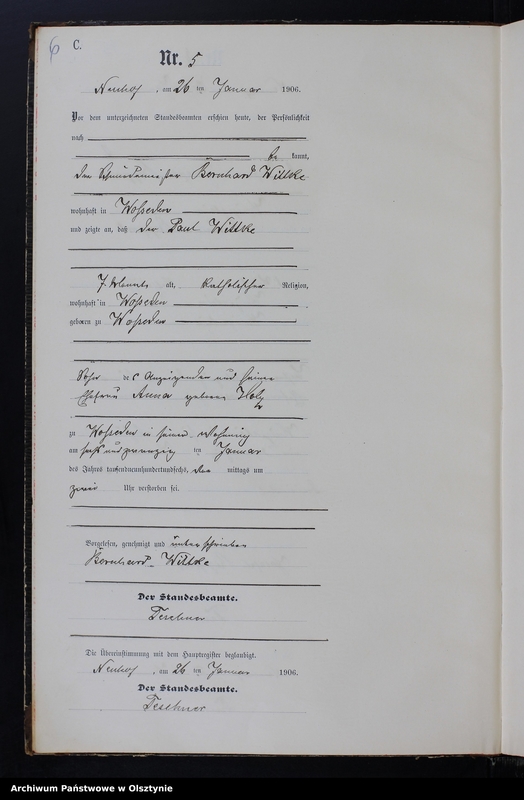 6
C.
Nr. 5
Neuhof, am 26 ten Januar 1906.
Vor dem unterzeichneten Standesbeamten erschien heute, der Persönlichkeit
nach
be kannt,
der Schmiedemeister Bernhard Wittke
wohnhaft in Wosseden
und zeigte an, daß der Paul Wittke
7 Monate alt, katholischer Religion,
wohnhaft in Wosseden
geboren zu Wosseden
Sohn des Anzeigenden und seiner
Ehefrau Anna geborene
zu Wosseden in seiner Wohnung
am sechs und zwanzig ten Januar
des Jahres tausendneunhundertundsechs, mittags um
zwei Uhr verstorben sei.
Vorgelesen, genehmigt und unterschrieben
Bernhard Wittke
Der Standesbeamte.
Teschner
Die Übereinstimmung mit dem Hauptregister beglaubigt.
Neuhof, am 26 ten Januar 1906.
Der Standesbeamte.
Teschner
Archiwum Państwowe w Olsztynie